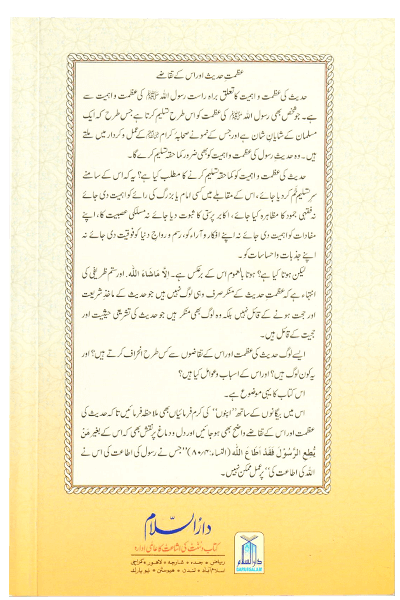 عظمتِ حدیث اور اس کے تقاضے
حدیث کی عظمت و اہمیت کا تعلق براہ راست رسول اللہ ﷺ کی عظمت و اہمیت سے
ہے۔ جو شخص بھی رسول اللہ ﷺ کی عظمت کو اس طرح تسلیم کرتا ہے جس طرح کہ ایک
مسلمان کے شایانِ شان ہے اور جس کے نمونے صحابہ کرام کے عمل و کردار میں ملتے
ہیں۔ وہ حدیثِ رسول کی عظمت و اہمیت کو بھی ضرور کما حقہ تسلیم کرے گا۔
حدیث کی عظمت و اہمیت کو کما حقہ تسلیم کرنے کا مطلب کیا ہے؟ یہ کہ اس کے سامنے
سرِ تسلیم خم کر دیا جائے، اس کے مقابلے میں کسی امام یا بزرگ کی رائے کو اہمیت دی جائے
نہ فقہی جمود کا مظاہرہ کیا جائے، اکابر پرستی کا ثبوت دیا جائے نہ مسلکی عصبیت کا، اپنے
مفادات کو اہمیت دی جائے نہ اپنے افکار و آراء کو، رسم و رواجِ دنیا کو فوقیت دی جائے نہ
اپنے جذبات و احساسات کو۔
لیکن ہوتا کیا ہے؟ ہوتا بالعموم اس کے برعکس ہے۔ اِلَّا مَاشَاءَ اللّٰه. اور ستم ظریفی کی
انتہاء ہے کہ عظمتِ حدیث کے منکر صرف وہی لوگ نہیں ہیں جو حدیث کے ماخذِ شریعت
اور حجت ہونے کے قائل نہیں بلکہ وہ لوگ بھی منکر ہیں جو حدیث کی تشریعی حیثیت اور
حجیت کے قائل ہیں۔
ایسے لوگ حدیث کی عظمت اور اس کے تقاضوں سے کس طرح انحراف کرتے ہیں؟ اور
یہ کون لوگ ہیں؟ اور اس کے اسباب و عوامل کیا ہیں؟
اس کتاب کا یہی موضوع ہے۔
اس میں بیگانوں کے ساتھ ”اپنوں“ کی کرم فرمائیاں بھی ملاحظہ فرمائیں تاکہ حدیث کی
عظمت اور اس کے تقاضے واضح بھی ہو جائیں اور دل و دماغ پر نقش بھی کہ اس کے بغیر مَنْ
يُّطِعِ الرَّسُوْلَ فَقَدْ اَطَاعَ اللّٰه (النساء:۸۰/۴) ”جس نے رسول کی اطاعت کی اس نے
اللہ کی اطاعت کی“ پر عمل ممکن نہیں۔
دارالسلام
کتاب و سنت کی اشاعت کا عالمی ادارہ
ریاض • جدہ • شارجہ • لاہور • کراچی
اسلام آباد • لندن • ہیوسٹن • نیویارک
دارالسلام
DARUSSALAM